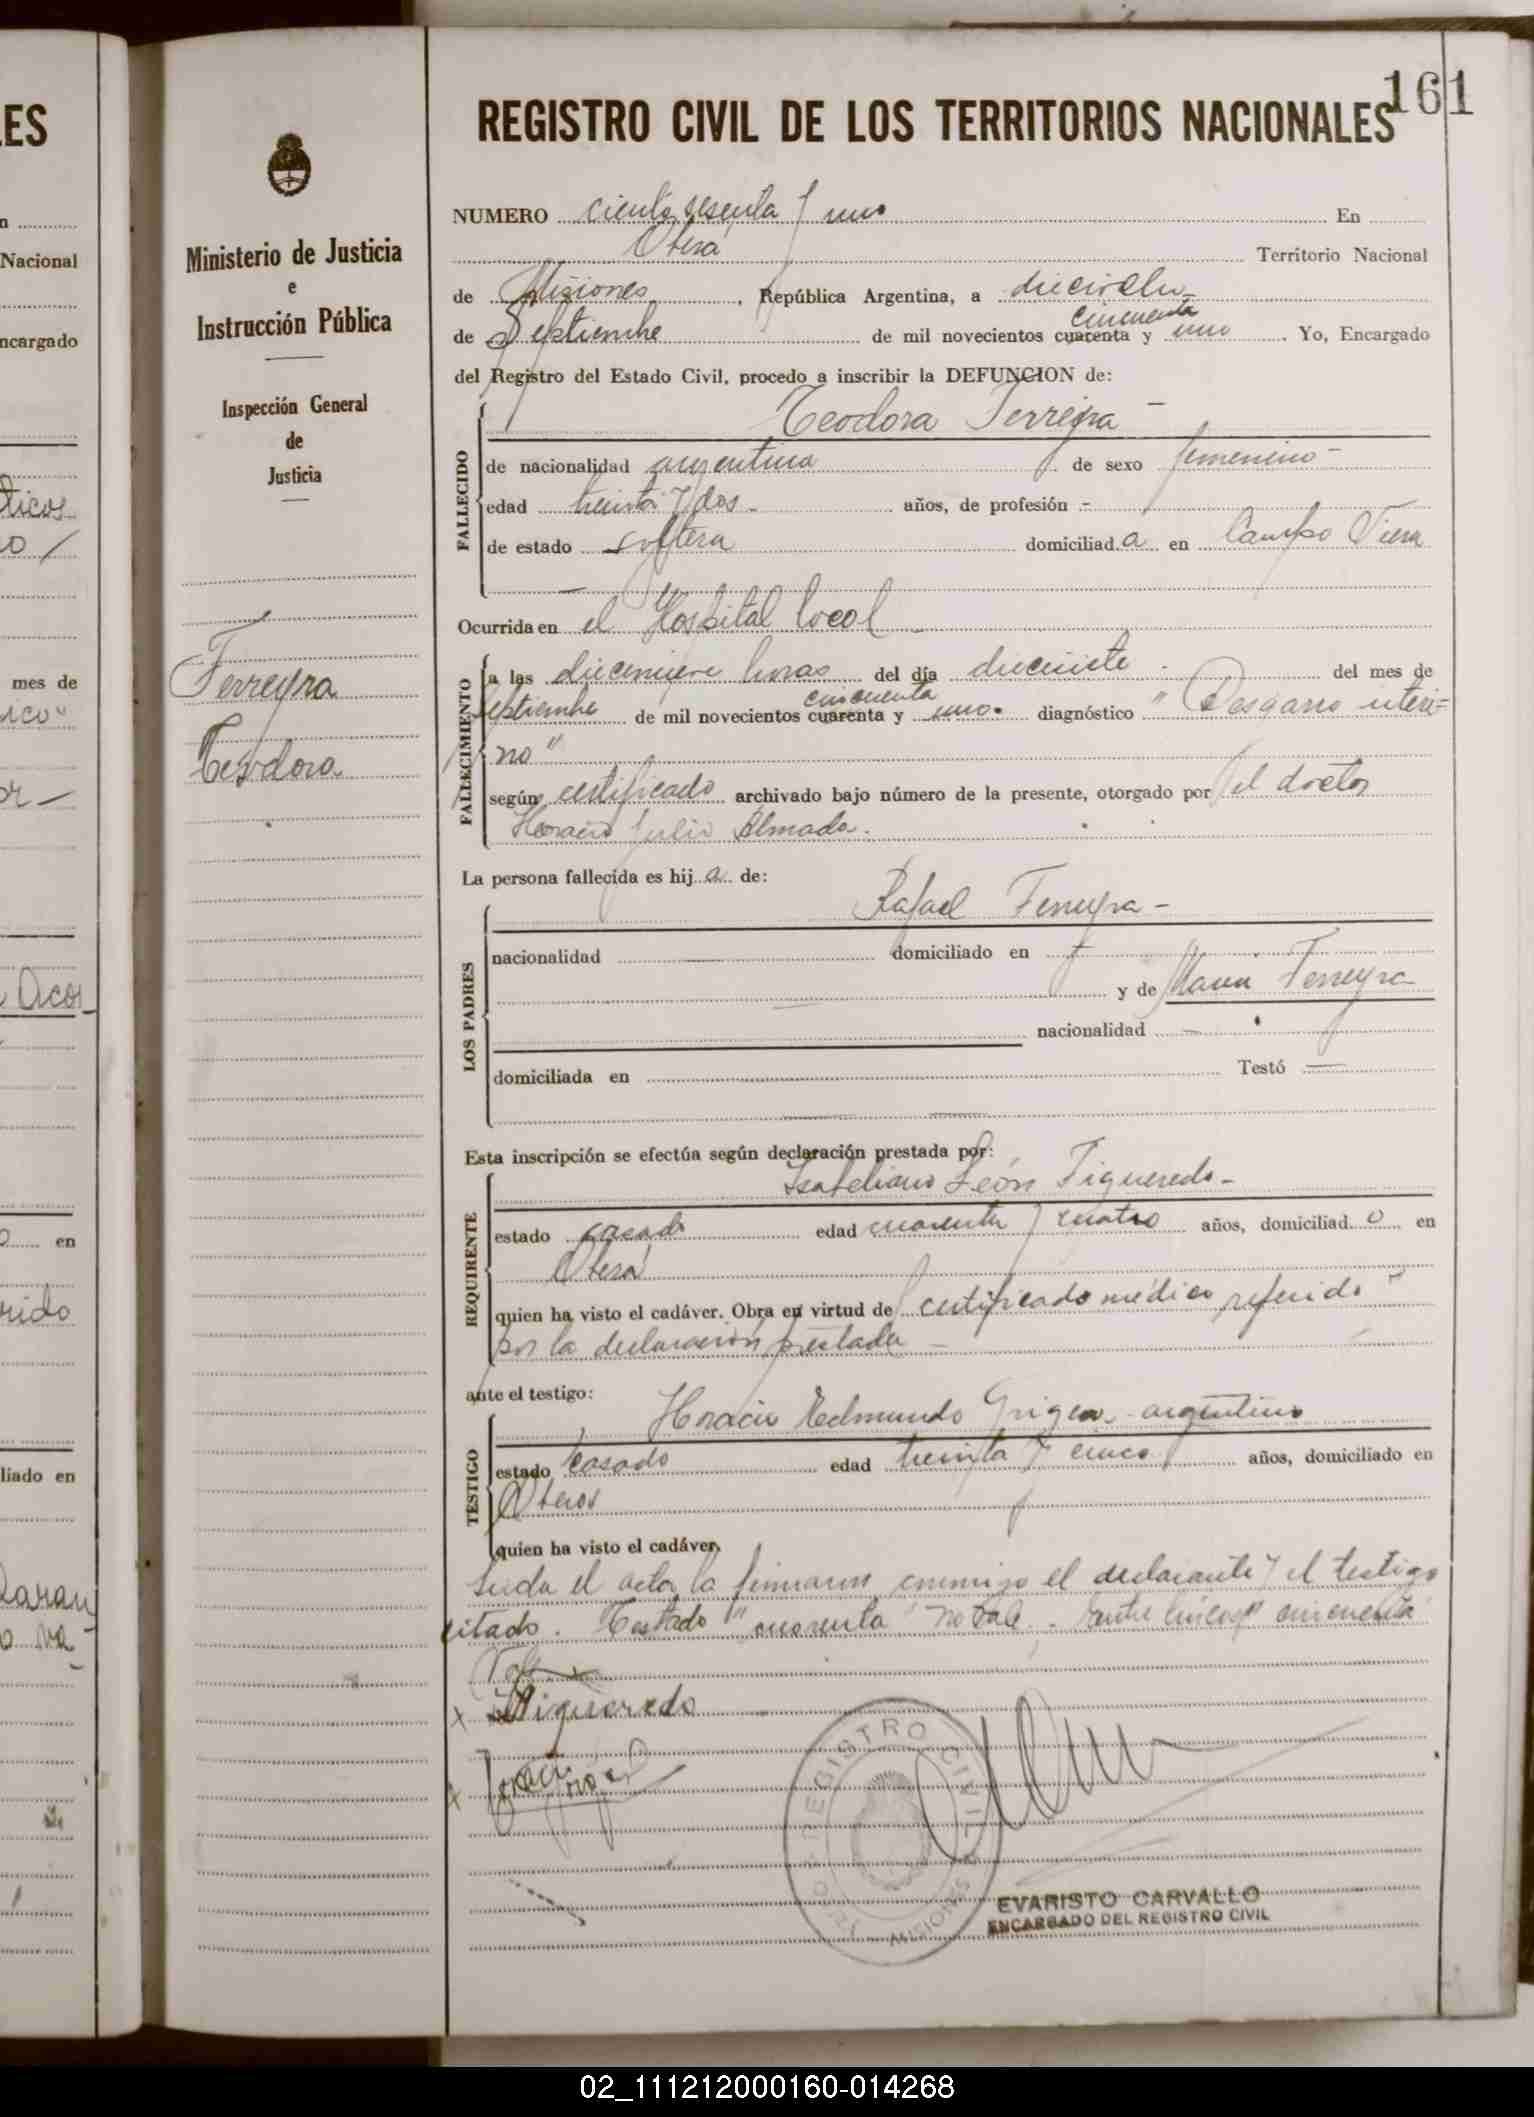 161
REGISTRO CIVIL DE LOS TERRITORIOS NACIONALES
NUMERO ciento sesenta y uno En
Oberá Territorio Nacional
de Misiones, República Argentina, a dieciocho
cincuenta
de Septiembre de mil novecientos cuarenta y uno. Yo, Encargado
del Registro del Estado Civil, procedo a inscribir la DEFUNCION de:
FALLECIDO
Teodora Ferreyra -
de nacionalidad argentina de sexo femenino -
edad treinta y dos - años, de profesión -
de estado soltera domiciliada en Campo Viera
Ocurrida en el Hospital local
FALLECIMIENTO
a las diecinueve horas del día diecisiete del mes de
cincuenta
Septiembre de mil novecientos cuarenta y uno. diagnóstico "Desgarro interi=
no"
según certificado archivado bajo número de la presente, otorgado por el doctor
Horacio Julio Almada.
La persona fallecida es hija de:
LOS PADRES
Rafael Ferreyra -
nacionalidad domiciliado en
y de María Ferreyra
nacionalidad
domiciliada en Testó
Esta inscripción se efectúa según declaración prestada por:
REQUIRENTE
León Figueredo -
estado casado edad cuarenta y cuatro años, domiciliado en
Oberá
quien ha visto el cadáver. Obra en virtud de certificado médico referido
por la declaración prestada
ante el testigo:
TESTIGO
Horacio Edmundo argentino
estado casado edad treinta y cinco años, domiciliado en
quien ha visto el cadáver.
Leida el acta la firmaron conmigo el declarante y el testigo
citado. Testado "cuarenta" no vale. Entre líneas "cincuenta"
Vale
x Figueredo
x
REGISTRO CIVIL
MISIONES
EVARISTO CARVALLO
ENCARGADO DEL REGISTRO CIVIL
Ministerio de Justicia
e
Instrucción Pública
Inspección General
de
Justicia
Ferreyra
Teodora
LES
Nacional
ncargado
ticos
mes de
en
rido
liado en
02_111212000160-014268